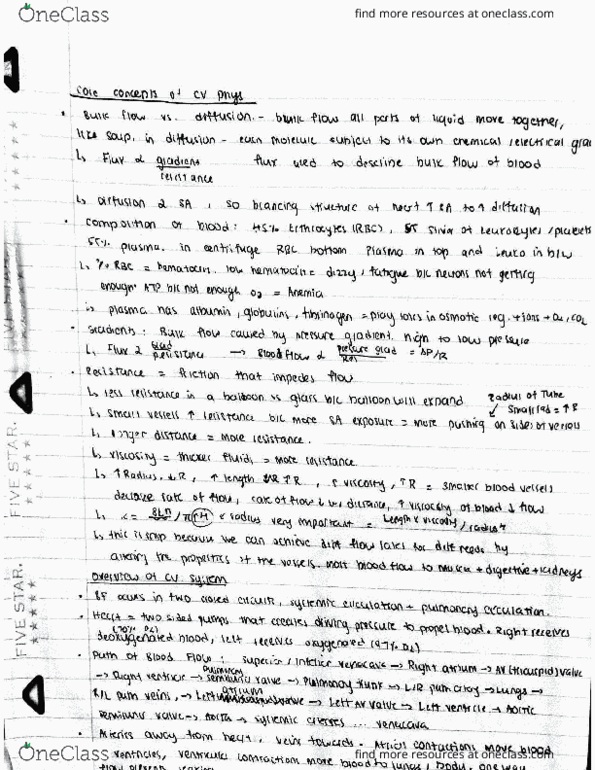 OneClass
find more resources at oneclass.com
Core concepts of CV phys
• Bulk flow vs. diffusion. - bulk flow all parts of liquid move together,
like soup. in diffusion - each molecule subject to its own chemical/electrical grad
↳ Flux α gradient flux used to describe bulk flow of blood
resistance
↳ diffusion α SA, so branching structure of heart ↑ SA to ↑ diffusion
• composition of blood: 45% Erythrocytes (RBC), sliver of leukocytes/platelets
55% plasma. in centrifuge RBC bottom plasma in top and leuko in b/w
↳ % RBC = hematocrit. low hematocrit = dizzy, fatigue b/c neurons not getting
enough ATP b/c not enough O2 = Anemia
↳ plasma has albumin, globulins, fibrinogen = play roles in osmotic reg. + ions + O2, CO2
• Gradients: Bulk flow caused by pressure gradient. high to low pressure
↳ Flux α grad/resistance → Blood flow α pressure grad/Res = ΔP/R
• Resistance = friction that impedes flow
↳ less resistance in a balloon vs glass b/c balloon will expand
Radius of Tube
small rad = ↑R
↳ small vessels ↑ resistance b/c more SA exposure = more pushing on sides of vessels
↳ longer distance = more resistance.
↳ viscosity = thicker fluid, = more resistance
↳ ↑ Radius, ↓R, ↑ length ↑R, ↑ viscosity, ↑R = smaller blood vessels
decrease rate of flow, rate of flow ↓ w/ distance, ↑ viscosity of blood ↓ flow
↳ R = 8Ln/πr4 * radius very important = Length x viscosity/radius4
↳ this is imp because we can achieve diff flow rates for diff needs by
altering the properties of the vessels. most blood flow to muscle + digestive + kidneys
Overview of CV system
• BF occurs in two closed circuits, systemic circulation + pulmonary circulation.
• Heart = two sided pumps that creates driving pressure to propel blood. Right receives
deoxygenated blood, left receives oxygenated
• Path of Blood Flow: superior/inferior venacava → Right atrium → AV (tricuspid) valve
→ Right ventricle → Pulmonary semilunar valve → Pulmonary trunk → L/R pulm artery → Lungs →
R/L pulm veins, → Left atrium → Left AV valve → Left ventricle → Aortic
semilunar valve → Aorta → systemic arteries ... venacava
• Arteries away from heart, veins towards. Atrial contractions move blood
ventricles, ventricular contractions move blood to lungs / body. one way
FIVE STAR.
FIVE STAR.
OneClass
find more resources at oneclass.com